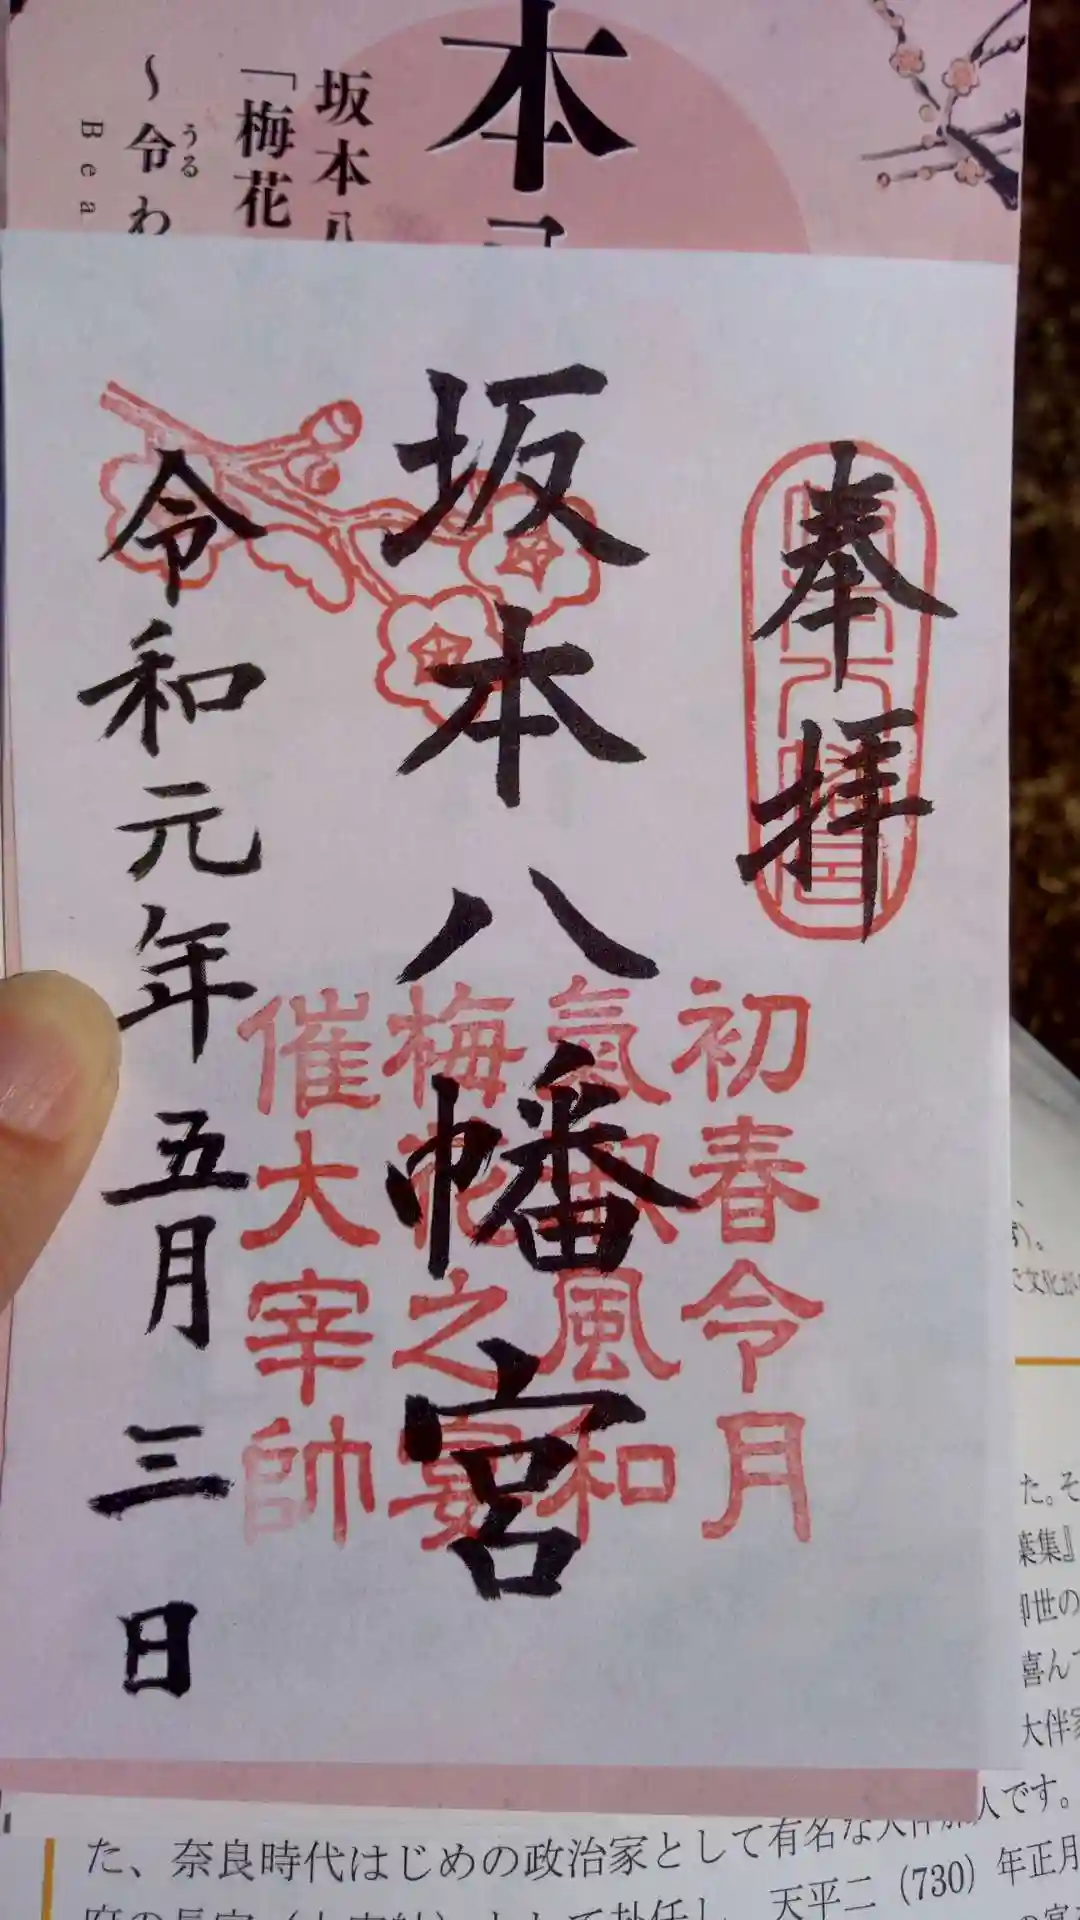 本
坂本八
「梅花
〜令わ
うる
Bea
奉拝
坂本八幡宮
令和元年五月三日
初春令月
氣淑風和
梅花之宴
催大宰帥
す)。
て文化が
た。そ
葉集』
世の
喜んで
大伴家
人です。
た、奈良時代はじめの政治家として有名な大伴旅
天平二(730)年正月